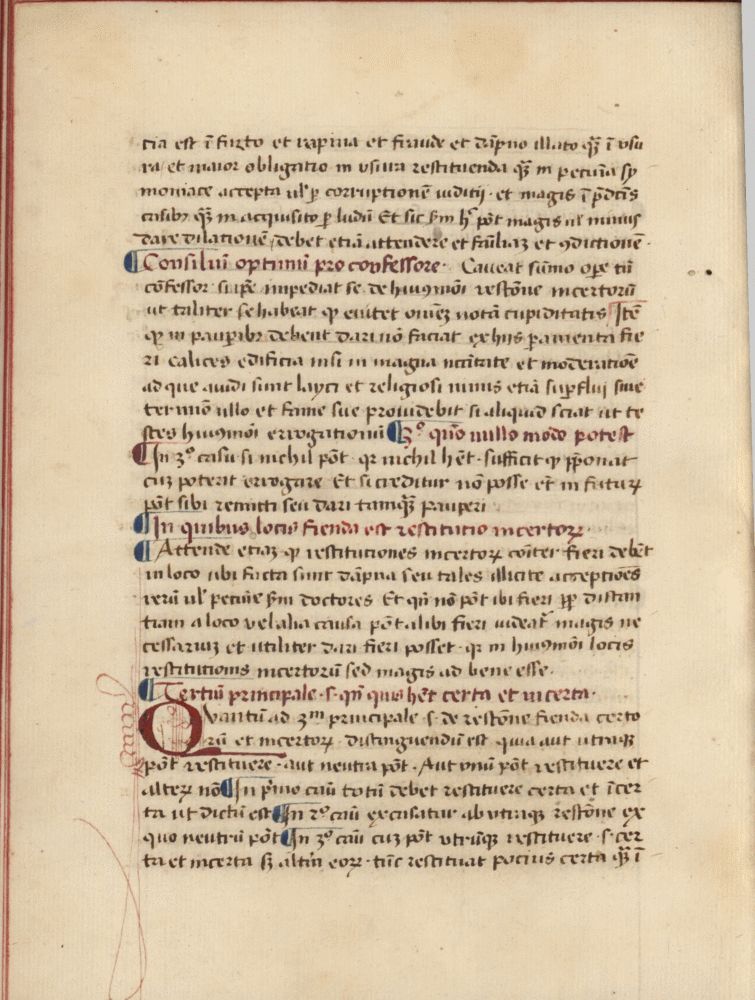 cia est ī furto et rapina et fraude et dāpno illato qȝ̄ ī vsu
ra et maior obligatio in vsura restituenda qȝ̄ in pecūia sy
moniace accepta ul' ꝑ corruptionē iudicij · et magis ī p̄dcīs
casibꝫ qȝ̄ in acquisito ꝑ ludū Et sic sm̄ hͨ pōt magis ul' minus
dare dilationē, debet etiā attendere et familiaȝ et ꝯdictionē ·
¶ Consiliū optimū pro confessore · Caueat sūmo oꝑe tn̄
cōfessor saīpe impediat se de huiꝯmōi restōne incertorū
ut taliter se habeat ꝙ euitet omēȝ notā cupiditatis Itē
ꝙ in pauꝑibꝫ debent dari nō faciat ex hijs ꝑamenta fie
ri calices edificia nisi in magna nccītate et moderatiōe
ad que auidi sunt layci et religiosi nimis etiā suꝑflui sine
termīo ullo et fame sue prouidebit si aliquid sciat ut te
stes huiꝯmōi errogationū ¶ 3º qn̄o nullo modo potest
¶ In 3º casu si nichil pōt qꝛ nichil hēt · sufficit ꝙ ꝓponat
cuȝ poterit errogare Et si creditur nō posse et̄ in futuꝝ
pōt sibi remitti seu dari tamqȝ̄ pauperi
¶ In quibus locis fienda est restitutio incertoꝝ ·
¶ Attende etiaȝ ꝙ restitutiones incertoꝝ cōiter fieri debēt
in loco ubi facta sunt dāpna seu tales illicite acceptiōes
rerū ul' pecūie sm̄ doctores Et qn̄ nō pōt ibi fieri ꝓp̄ distan
tiam a loco vel alia causa pōt alibi fieri uideat᷑ magis ne
cessariuȝ et utiliter dari fieri posset · qꝛ in huiꝯmōi locis
restitutionis incertorū sed magis ad bene esse ·
¶ Tertiū principale · s· qn̄ quis hēt certa et incerta ·
Qvantū ad 3m̄ principale · s· de restōne fienda certo
rū et incertoꝝ · distinguendū est quia aut utraqȝ
pōt restituere · aut neutra pōt · Aut vnū pōt restituere et
alteꝝ nō ¶ In p̄mo casū totū debet restituere certa et īcer
ta ut dictū est ¶ In 2º casū excusatur ab utraqȝ restōne ex
quo neutrū pōt ¶ In 3º casū cuȝ pōt vtrūqȝ restituere · s· cer
ta et incerta sȝ altīn eoꝝ · tūc restituat pocius certa qȝ̄ ī